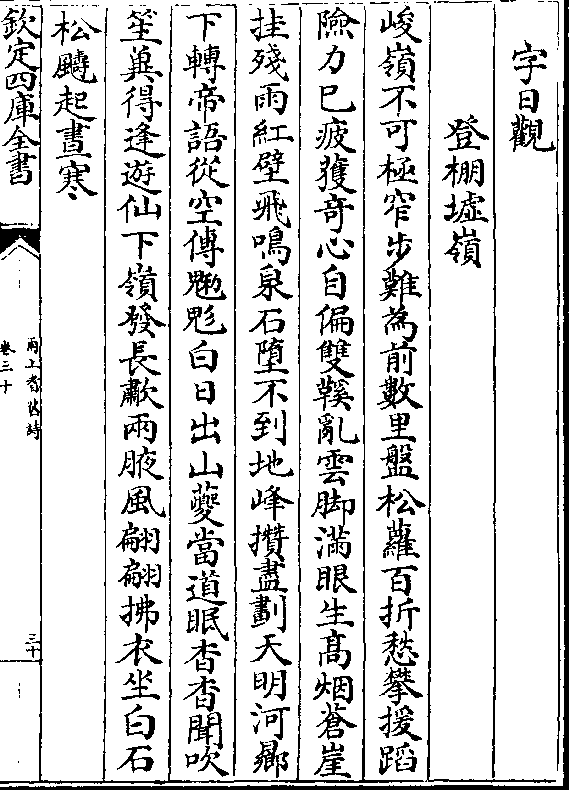 字日觀
登棚墟嶺
峻嶺不可極窄步難為前數里盤松蘿百折愁攀援蹈
險力已疲獲奇心自偏雙鞵亂雲脚滿眼生髙烟蒼崖
挂殘雨紅壁飛鳴泉石墮不到地峰攢盡劃天明河腳
下轉帝語從空傳魑魅白日出山夔當道眠杳杳聞吹
笙冀得逢遊仙下嶺發長歗兩腋風翩翩拂衣坐白石
松飈起晝寒
欽定四庫全書
卷三十
三十